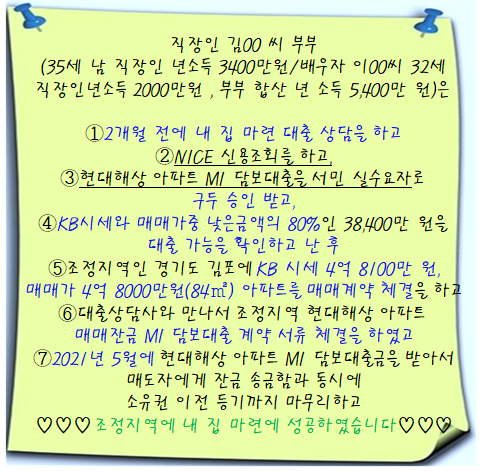 직장인 김00 씨 부부
(35세 남 직장인 년소득 3400만원/배우자 이00씨 32세
직장인년소득 2000만원 , 부부 합산 년 소득 5,400만 원)은
①2개월 전에 내 집 마련 대출 상담을 하고
②NICE 신용조회를 하고,
③현대해상 아파트 MI 담보대출을 서민 실수요자로
구두 승인 받고,
④KB시세와 매매가중 낮은금액의 80%인 38,400만 원을
대출 가능을 확인하고 난 후
⑤조정지역인 경기도 김포에 KB 시세 4억 8100만 원,
매매가 4억 8000만원(84㎡) 아파트를 매매계약 체결을 하고
⑥대출상담사와 만나서 조정지역 현대해상 아파트
매매잔금 MI 담보대출 계약 서류 체결을 하였고
⑦2021년 5월에 현대해상 아파트 MI 담보대출금을 받아서
매도자에게 잔금 송금함과 동시에
소유권 이전 등기까지 마무리하고
♡♡♡조정지역에 내 집 마련에 성공하였습니다♡♡♡